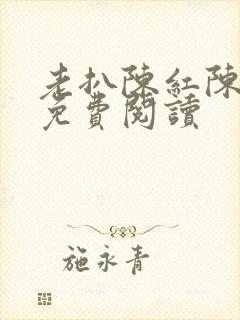 老扒陳紅陳
免費閱讀
施永青